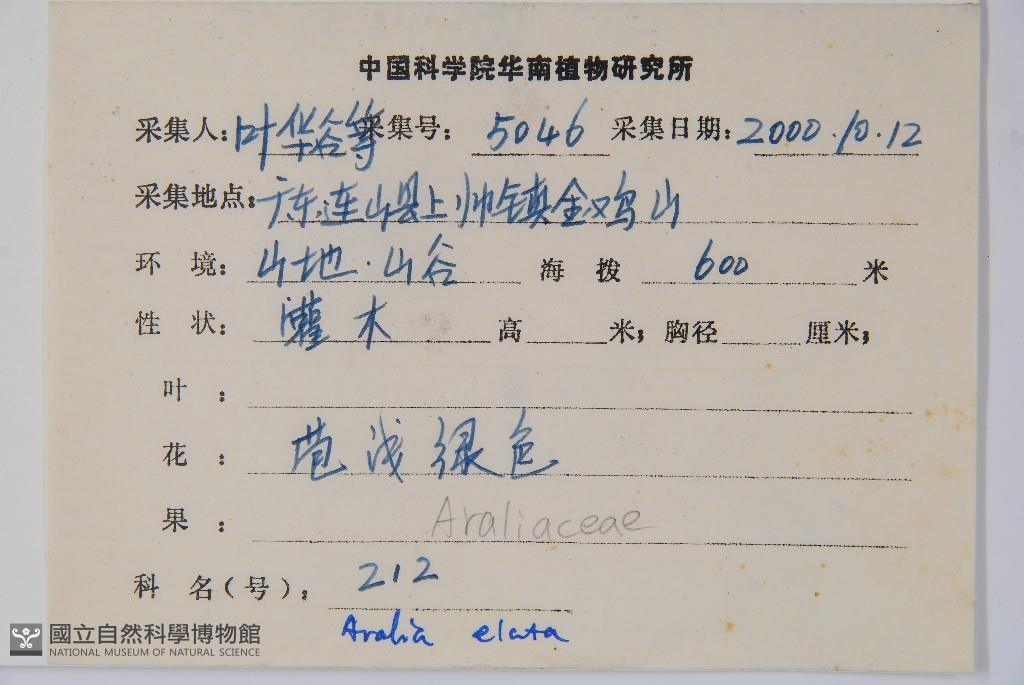 中国科学院华南植物研究所
采集人:叶华谷等 采集号: 5046 采集日期:2000.10.12
采集地点:广东连山县上帅镇金鸡山
环 境: 山地.山谷 海 拨 600 米
性 状: 灌木 高 米; 胸径 厘米;
叶 :
花 : 苞浅绿色
果 : Araliaceae
科 名(号): 212
Aralia elata
國立自然科學博物館
NATIONAL MUSEUM OF NATURAL SCIENCE